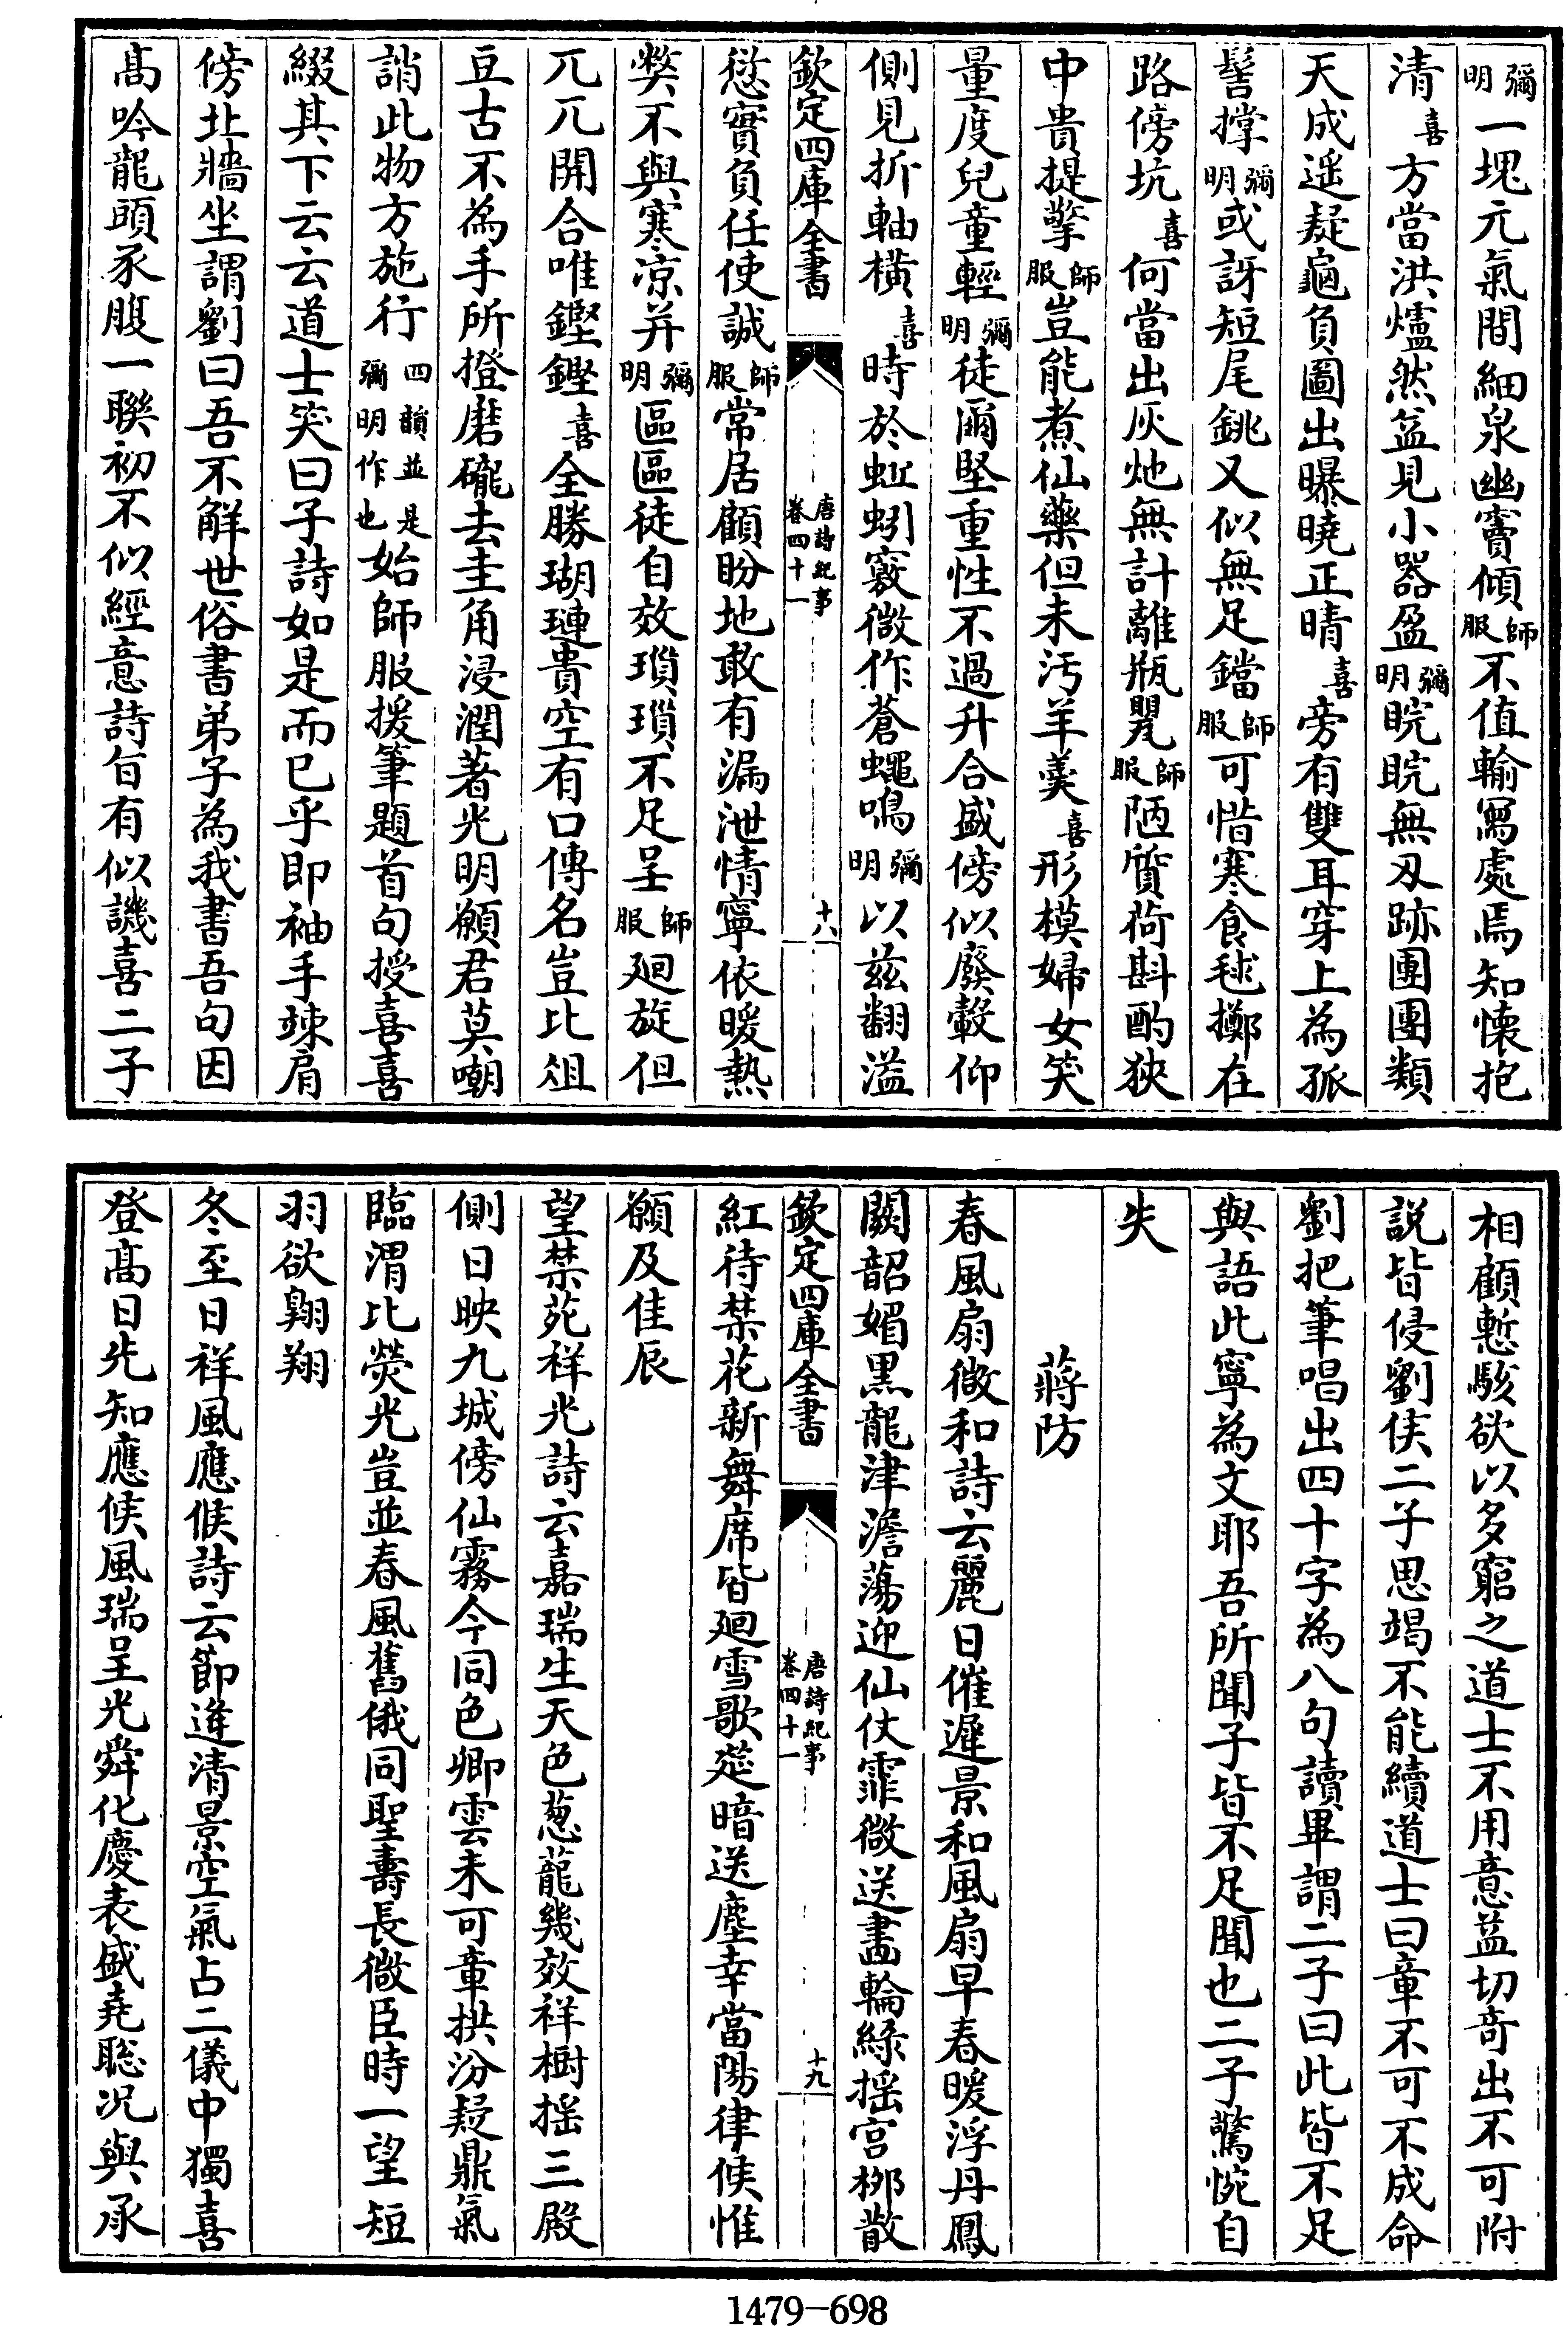 彌明一塊元氣間細泉幽竇傾師服不值輸寫處焉知懷抱
清喜方當洪爐然益見小器盈彌明睆睆無刃跡團團類
天成遥疑龜負圖出曝曉正晴喜旁有雙耳穿上為孤
髻撑彌明或訝短尾銚又似無足鐺師服可惜寒食毬擲在
路傍坑喜何當出灰灺無計離瓶甖師服陋質荷斟酌狹
中貴提擎師服豈能煮仙藥但未汚羊羹喜形模婦女笑
量度兒童輕彌明徒爾堅重性不過升合盛傍似廢轂仰
側見折軸橫喜時於蚯蚓竅微作蒼蠅鳴彌明以兹翻溢
欽定四庫全書
唐詩紀事
卷四十一
十八
愆實負任使誠師服常居顧盼地敢有漏泄情寧依暖熱
弊不與寒凉并彌明區區徒自效瑣瑣不足呈師服廻旋但
兀兀開合唯鏗鏗喜全勝瑚璉貴空有口傳名豈比俎
豆古不為手所撜磨礲去圭角浸潤著光明願君莫嘲
誚此物方施行四韻並是彌明作也始師服援筆題首句授喜喜
綴其下云云道士笑曰子詩如是而已乎即袖手竦肩
傍北牆坐謂劉曰吾不解世俗書弟子為我書吾句因
髙吟龍頭豕腹一聯初不似經意詩旨有似譏喜二子
相顧慙駭欲以多窮之道士不用意益切奇出不可附
説皆侵劉侯二子思竭不能續道士曰章不可不成命
劉把筆唱出四十字為八句讀畢謂二子曰此皆不足
與語此寧為文耶吾所聞子皆不足聞也二子驚惋自
失
蔣防
春風扇微和詩云麗日催遲景和風扇早春暖浮丹鳳
闕韶媚黑龍津澹蕩迎仙仗霏微送畫輪綠揺宫柳散
欽定四庫全書
唐詩紀事
卷四十一
十九
紅待禁花新舞席皆廻雪歌筵暗送塵幸當陽律候惟
願及佳辰
望禁苑祥光詩云嘉瑞生天色葱蘢幾效祥樹揺三殿
側日映九城傍仙霧今同色卿雲未可章拱汾疑鼎氣
臨渭比熒光豈並春風舊俄同聖壽長微臣時一望短
羽欲翺翔
冬至日祥風應候詩云節逢清景空氣占二儀中獨喜
登髙日先知應候風瑞呈光舜化慶表盛堯聡况與承
1479-698